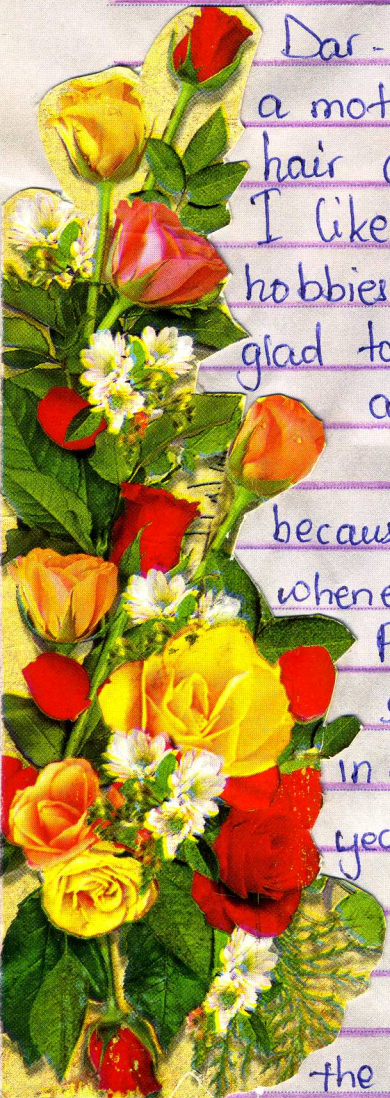 Dar-
a mot
hair
I like
hobbies
glad to
a
becaus
whene
in
yea
the